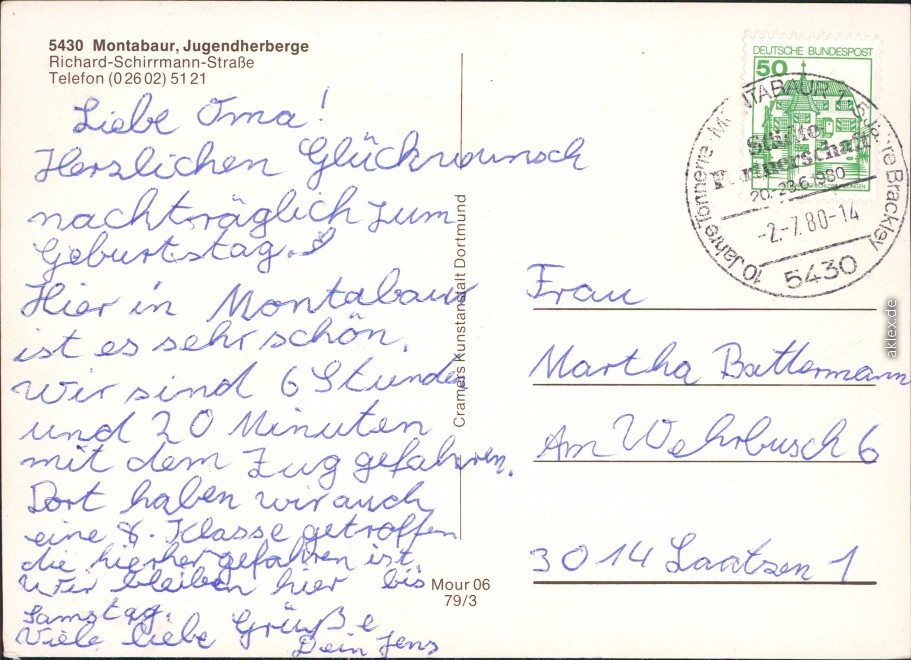 5430 Montabaur, Jugendherberge
Richard-Schirrmann-Straße
Telefon (02602) 5121
Liebe Oma!
Herzlichen Glückwunsch
nachträglich zum
Geburtstag.
Hier in Montabaur
ist es sehr schön.
Wir sind 6 Stunden
und 20 Minuten
mit dem Zug gefahren.
Dort haben wir auch
eine 8. Klasse getroffen
die hierher gefahren ist.
Wir bleiben hier bis
Samstag.
Viele liebe Grüße
Dein Jens
Cramers Kunstanstalt Dortmund
Mour 06
79/3
DEUTSCHE BUNDESPOST
50
MONTABAUR 1
10 Jahre Tonnerre
5 Jahre Brackley
Städte
Partnerschaft
20.-23.6.1980
-2.-7.80-14
5430
Frau
Martha Battermann
Am Wehrbusch 6
3014 Laatzen 1
aklex.de